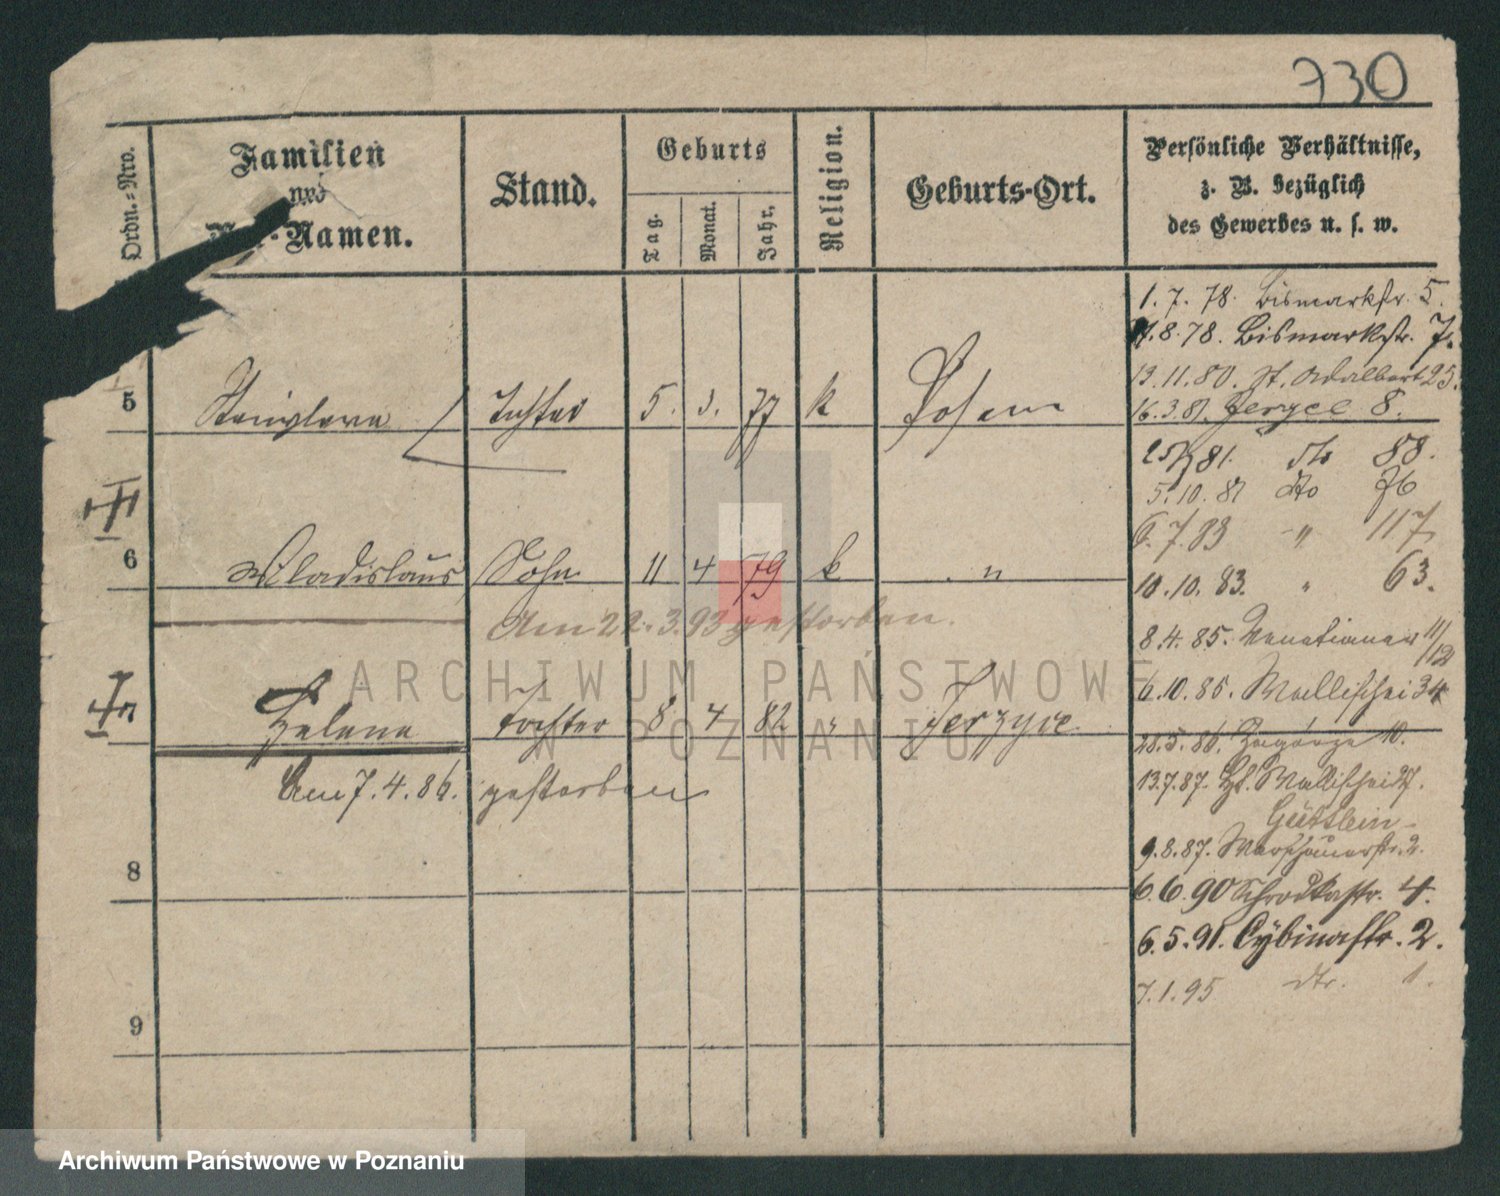 730
Ordn.-Nro.
Familien
und
Vor-Namen.
Stand.
Geburts
Tag.
Monat.
Jahr.
Religion.
Geburts-Ort.
Persönliche Verhältnisse,
z. B. bezüglich
des Gewerbes u. s. w.
1. 7. 78. Bismarkstr. 5.
8. 78. Bismarkstr. 7.
13. 11. 80. St. Adalbert 25.
16. 3. 81. Jerzyce 8.
5 Stanislava Tochter 5. 3. 77 k Posen
81. dto 88.
5. 10. 81 dto 76
6. 7. 83 " 117
10. 10. 83. " 63.
6 Wladislaus Sohn 11 4 79 k "
Am 22. 3. 93 gestorben.
8. 4. 85. Venetianer 11/12
6. 10. 85. Wallischei 34
7 Helena Tochter 8 4 82 " Jerzyce
Am 7. 4. 86. gestorben
5. 86. Zagorze 10.
13. 7. 87. Wallischei
9. 8. 87. Warschauerstr. 2.
8
6. 6. 90 Schrodkastr. 4.
6. 5. 91. Cybinastr. 2.
7. 1. 95 dto. 1.
9
ARCHIWUM PAŃSTWOWE
W POZNANIU
Archiwum Państwowe w Poznaniu